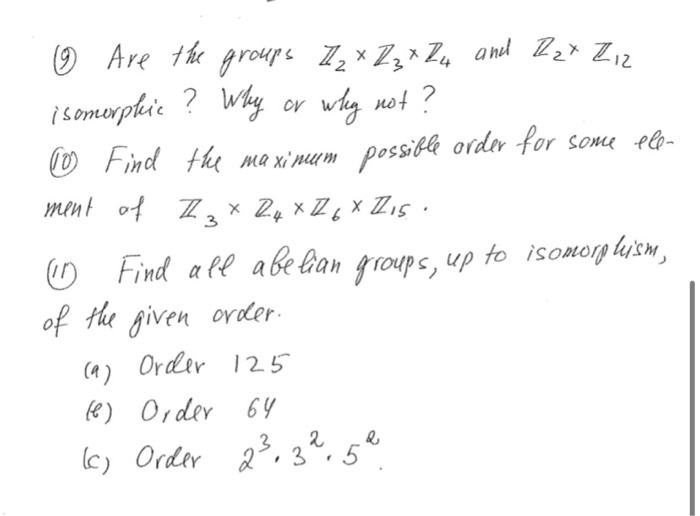 ⑨ Are the groups ℤ₂ × ℤ₃ × ℤ₄ and ℤ₂ × ℤ₁₂
isomorphic? Why or why not?
⑩ Find the maximum possible order for some ele-
ment of ℤ₃ × ℤ₄ × ℤ₆ × ℤ₁₅.
⑪ Find all abelian groups, up to isomorphism,
of the given order.
(a) Order 125
(b) Order 64
(c) Order 2³·3²·5².